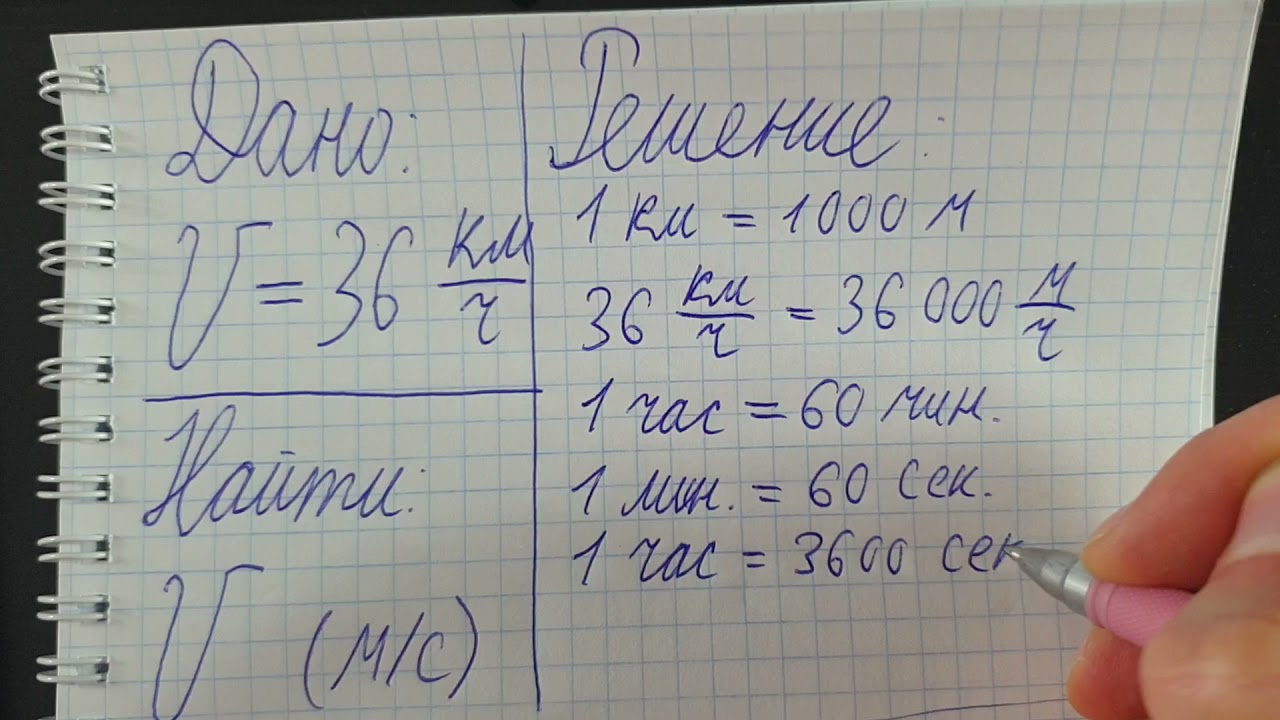 Дано:
V = 36 км/ч
Найти:
V (м/с)
Решение:
1 км = 1000 м
36 км/ч = 36 000 м/ч
1 час = 60 мин.
1 мин. = 60 сек.
1 час = 3600 сек